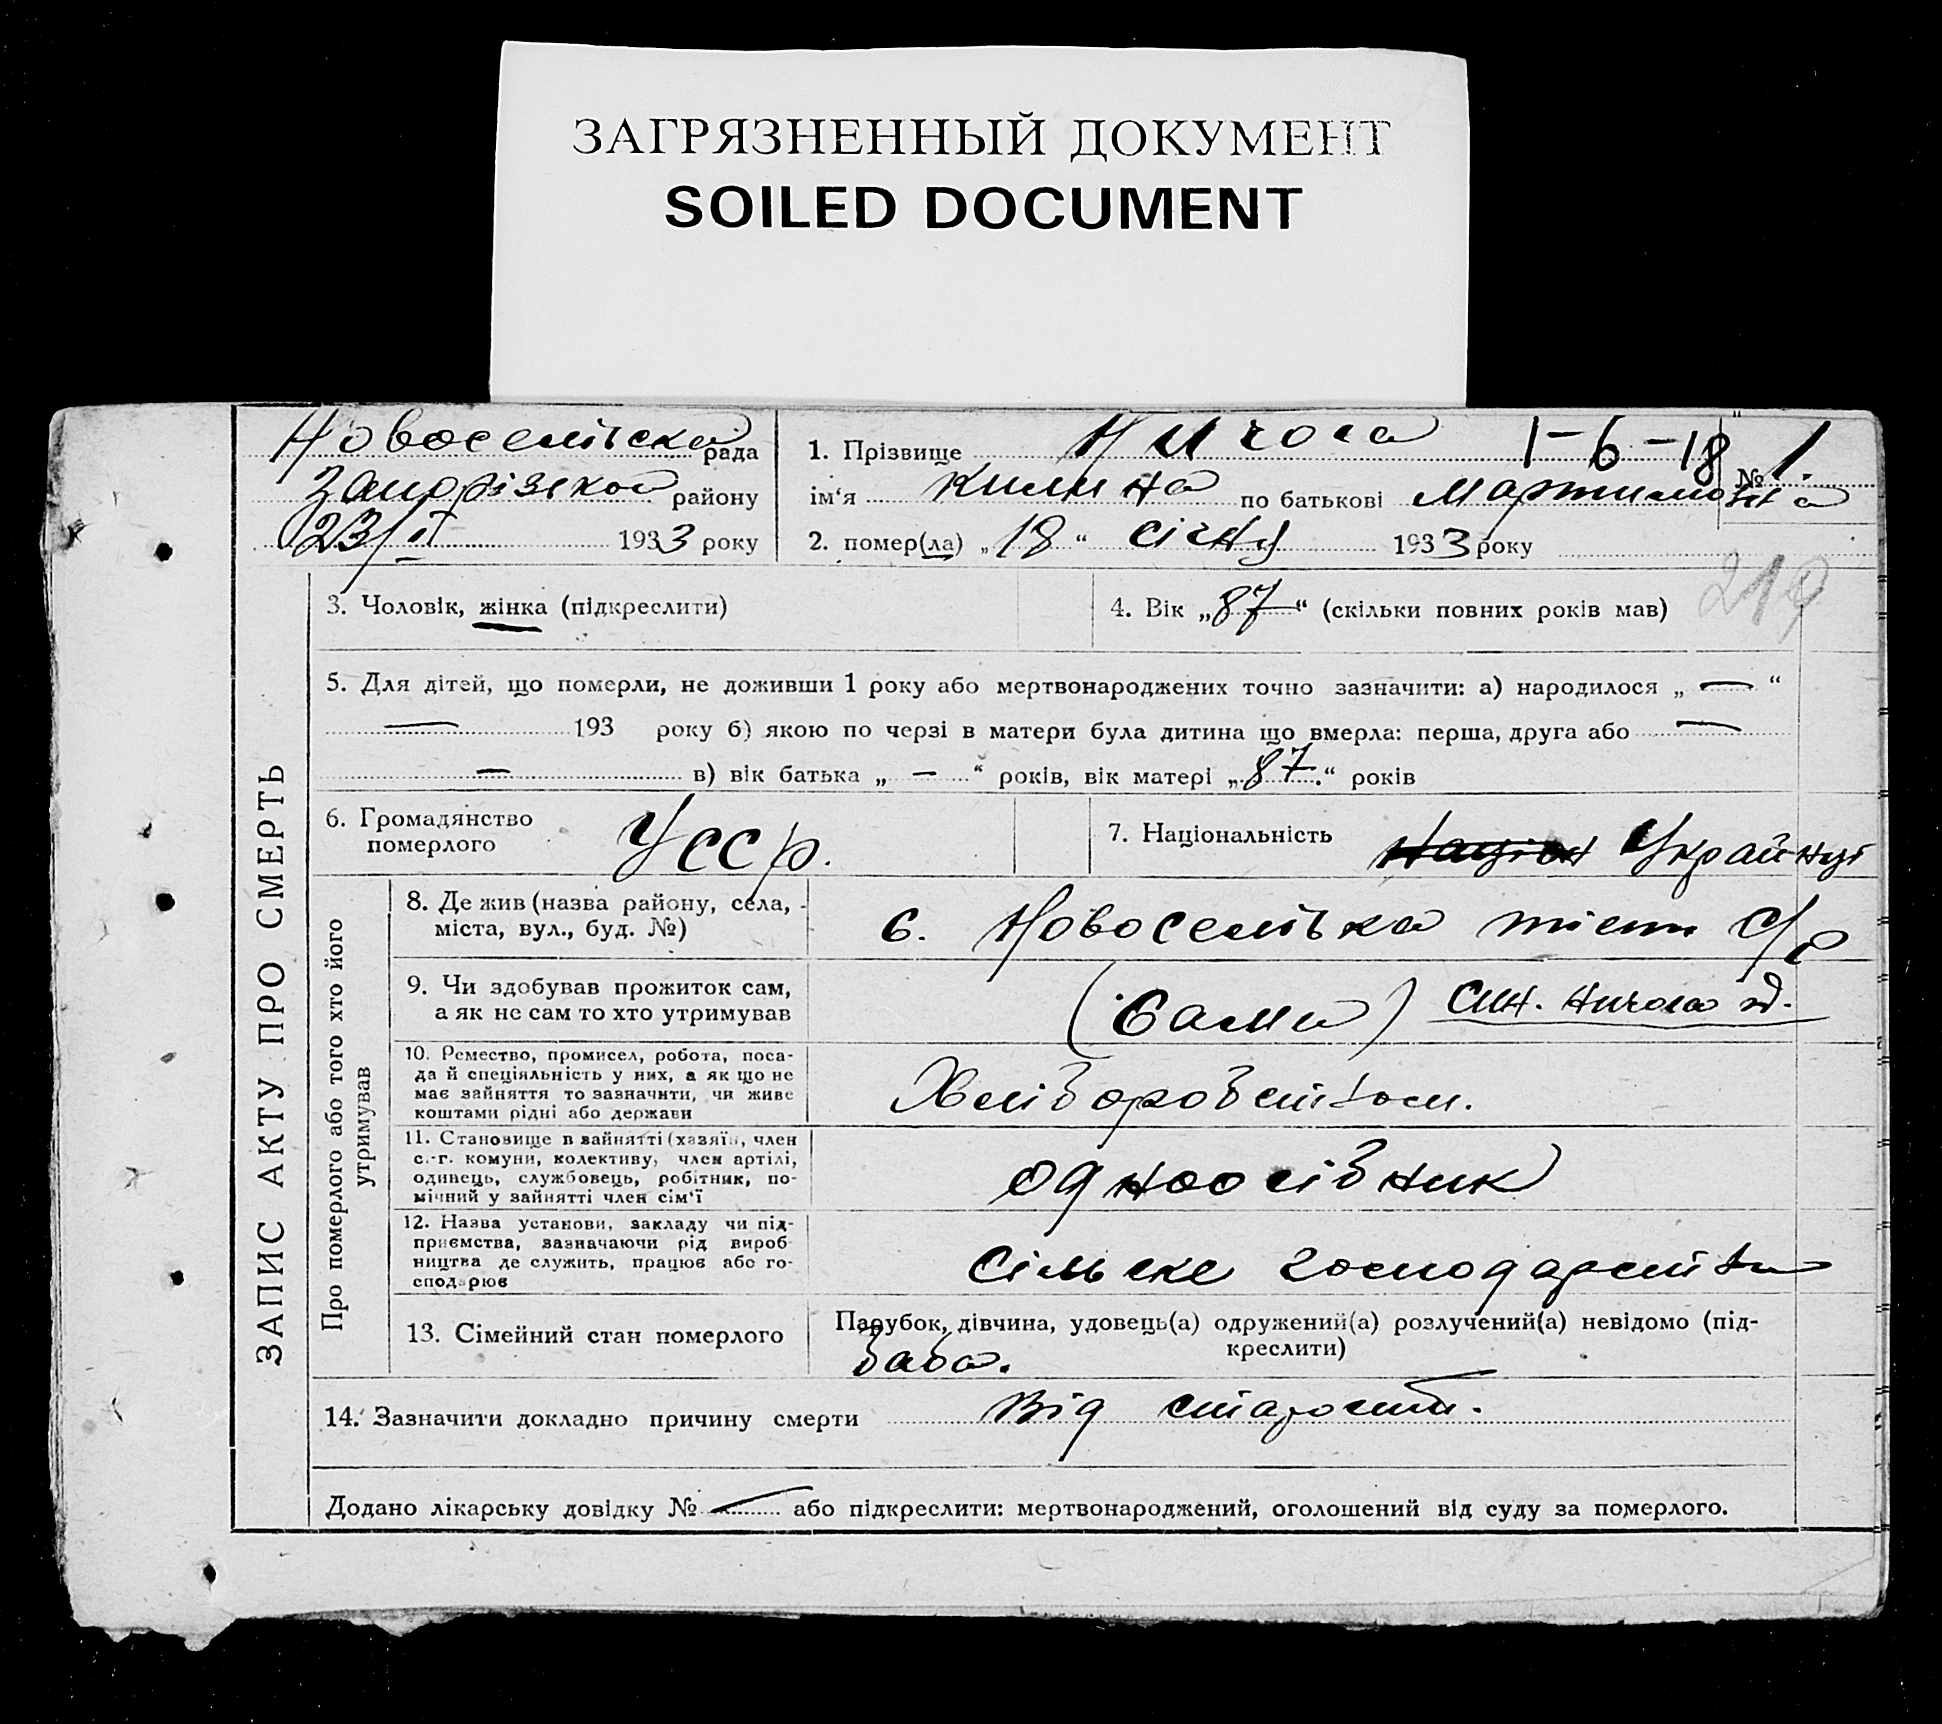 ЗАГРЯЗНЕННЫЙ ДОКУМЕНТ
SOILED DOCUMENT
Новоселівська рада
Запорізької району
23/II 1933 року
1. Прізвище Нигода 1-6-18 № 1.
ім‘я Килина по батькові Мартинова
2. помер(ла) „18“ січня 1933 року
3. Чоловік, жінка (підкреслити)
4. Вік „87“ (скільки повних років мав)
219
5. Для дітей, що померли, не доживши 1 року або мертвонароджених точно зазначити: а) народилося „ — “
— 193 року б) якою по черзі в матери була дитина що вмерла: перша, друга або —
— в) вік батька „ — “ років, вік матері „87.“ років
6. Громадянство
померлого
Усср.
7. Національність Україн
8. Де жив (назва району, села,
міста, вул., буд. №)
с. Новоселівка тієї с/р
9. Чи здобував прожиток сам,
а як не сам то хто утримував
(Сама) син.
10. Ремество, промисел, робота, поса-
да й спеціяльність у них, а як що не
має зайняття то зазначити, чи живе
коштами рідні або держави
Хліборобством.
11. Становище в зайнятті (хазяїн, член
с.-г. комуни, колективу, член артілі,
одинець, службовець, робітник, по-
мічний у зайнятті член сім‘ї
одноосібник
12. Назва установи, закладу чи під-
приємства, зазначаючи рід вироб-
ництва де служить, працює або го-
сподарює
Сільське господарство
13. Сімейний стан померлого
Парубок, дівчина, удовець(а) одружений(а) розлучений(а) невідомо (під-
креслити)
Баба.
14. Зазначити докладно причину смерти Від старости.
Додано лікарську довідку № — або підкреслити: мертвонароджений, оголошений від суду за померлого.
ЗАПИС АКТУ ПРО СМЕРТЬ
Про померлого або того хто його
утримував